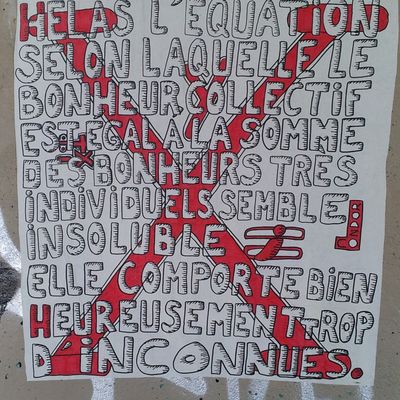 HELAS L'EQUATION
SELON LAQUELLE LE
BONHEUR COLLECTIF
EST EGAL A LA SOMME
DES BONHEURS TRES
INDIVIDUELS SEMBLE
INSOLUBLE
ELLE COMPORTE BIEN
HEUREUSEMENT TROP
D'INCONNUES.